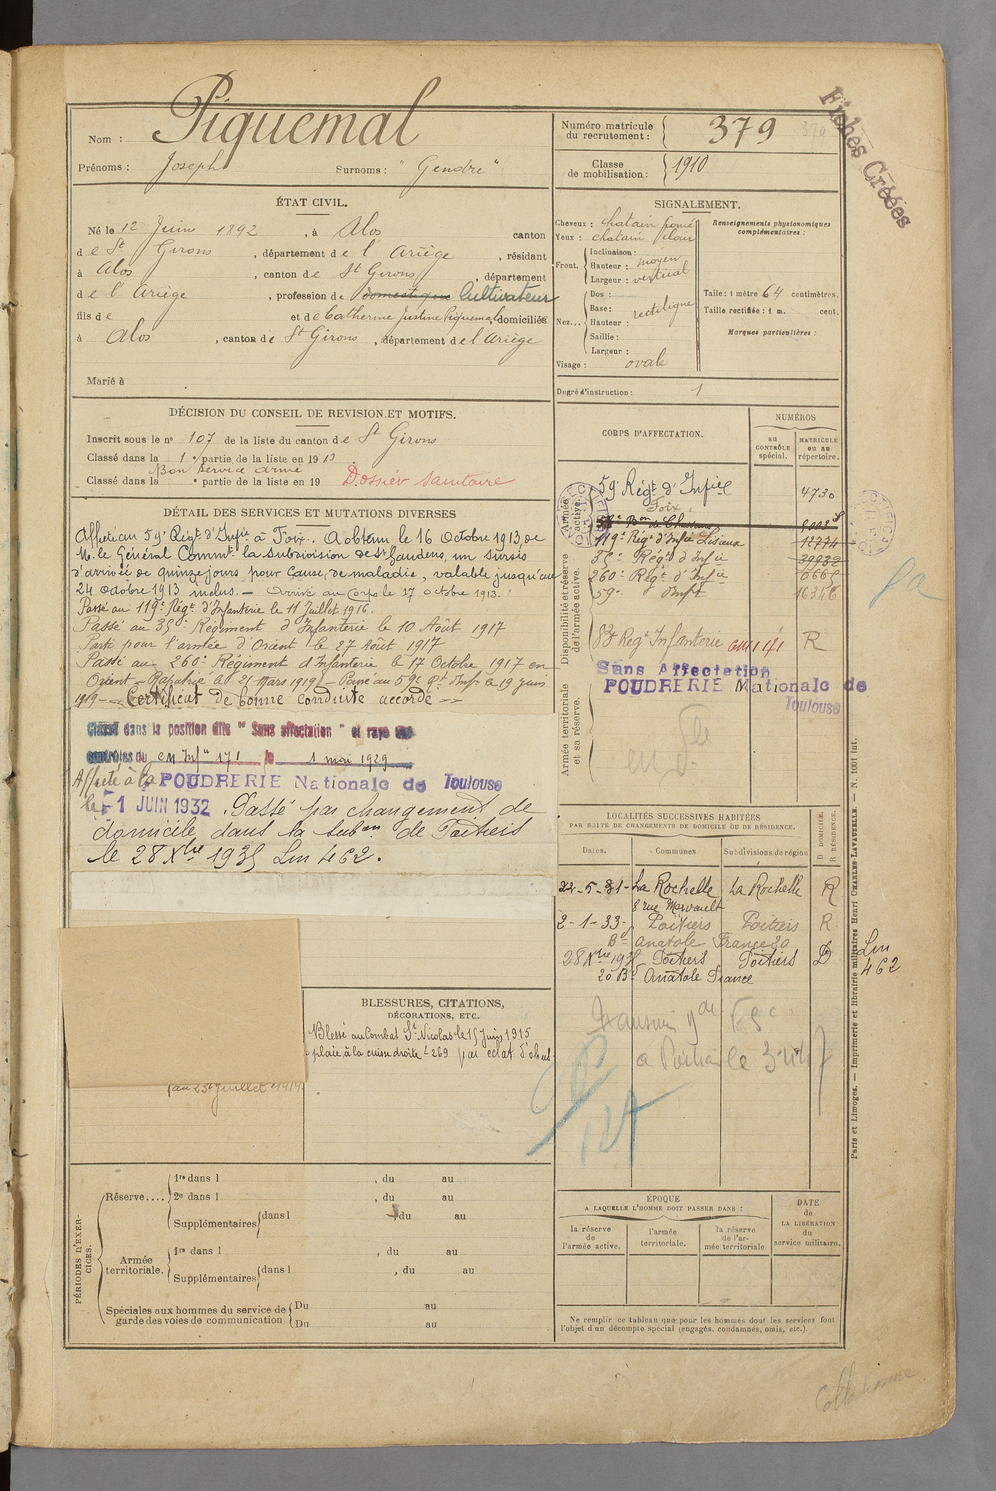 Nom : Piquemal
Prénoms : Joseph Surnoms : "Gendre"
Numéro matricule du recrutement : 379
Classe de mobilisation : 1910
Fiches Créées
ÉTAT CIVIL.
Né le 12 Juin 1892, à Alos canton
de St Girons, département de l'Ariège, résidant
à Alos, canton de St Girons, département
de l'Ariège, profession de domestique Cultivateur
fils de et de Catherine Justine Piquemal domiciliés
à Alos, canton de St Girons, département de l'Ariège
Marié à
SIGNALEMENT.
Cheveux : chatain foncé
Yeux : chatain clair
Front.
Inclinaison :
Hauteur : moyen
Largeur : vertical
Nez...
Dos :
Base : rectiligne
Hauteur :
Saillie :
Largeur :
Visage : ovale
Renseignements physionomiques
complémentaires :
Taille : 1 mètre 64 centimètres.
Taille rectifiée : 1 m. cent.
Marques particulières :
Degré d'instruction : 1
DÉCISION DU CONSEIL DE REVISION ET MOTIFS.
Inscrit sous le no 107 de la liste du canton de St Girons
Classé dans la 1e partie de la liste en 1913
Bon service armé
Classé dans la e partie de la liste en 19
Dossier sanitaire
DÉTAIL DES SERVICES ET MUTATIONS DIVERSES
Affecté au 59e Régt d'Infie à Foix. A obtenu le 16 Octobre 1913 de
M. le Général Commt la subdivision de St Gaudens, un sursis
d'arrivée de quinze jours pour cause de maladie, valable jusqu'au
24 octobre 1913 inclus. — Arrivé au Corps le 27 octobre 1913.
Passé au 119e Régt d'Infanterie le 11 Juillet 1916.
Passé au 35e Régiment d'Infanterie le 10 Août 1917
Parti pour l'armée d'Orient le 27 Août 1917
Passé au 260e Régiment d'Infanterie le 17 Octobre 1917 en
Orient — Rapatrié le 21 Mars 1919 — Passé au 59e Rt d'Inf le 19 juin
1919 — Certificat de bonne conduite accordé —
Classé dans la position dite "Sans affectation" et rayé des
contrôles du cm Infie 171 le 1 mai 1929
Affecté à la POUDRERIE Nationale de Toulouse
le 1 JUIN 1932. Passé par changement de
domicile dans la subon de Poitiers
le 28 Xbre 1935 Lm 462.
CORPS D'AFFECTATION.
NUMÉROS
au CONTRÔLE spécial.
MATRICULE ou au répertoire.
Armée active.
59e Régt d'Infie 4730
Foix
Bon de Chasseurs
119e Régt d'Infie Lisieux
Disponibilité et réserve de l'armée active.
35e Régt d'Infie
260e Régt d'Infie
59e d'Inf 16346
83e Régt Infanterie cm 171 R
Sans Affectation
POUDRERIE Nationale de
Toulouse
Armée territoriale et sa réserve.
LOCALITÉS SUCCESSIVES HABITÉES
PAR SUITE DE CHANGEMENTS DE DOMICILE OU DE RÉSIDENCE.
Dates. Communes Subdivisions de région
D DOMICILE. R RÉSIDENCE.
22-5-31 La Rochelle La Rochelle R
8 rue
2-1-33 Poitiers Poitiers R
Bd Anatole France 20
28 Xbre 1935 Poitiers Poitiers D
20 Bd Anatole France
Lm
462
BLESSURES, CITATIONS,
DÉCORATIONS, ETC.
Blessé au Combat St Nicolas le 15 Juin 1915
plaie à la cuisse droite par éclat d'obus
au 23 Juillet 1919
PÉRIODES D'EXERCICES.
Réserve....
1re dans l , du au
2e dans l , du au
Supplémentaires dans l , du au
Armée territoriale.
1re dans l , du au
Supplémentaires dans l , du au
Spéciales aux hommes du service de garde des voies de communication
Du au
Du au
ÉPOQUE
A LAQUELLE L'HOMME DOIT PASSER DANS :
la réserve de l'armée active.
l'armée territoriale.
la réserve de l'armée territoriale.
DATE de LA LIBÉRATION du service militaire.
Ne remplir ce tableau que pour les hommes dont les services font
l'objet d'un décompte spécial (engagés, condamnés, omis, etc.).
Paris et Limoges. — Imprimerie et librairie militaires Henri CHARLES-LAVAUZELLE. — N. 1001 int.